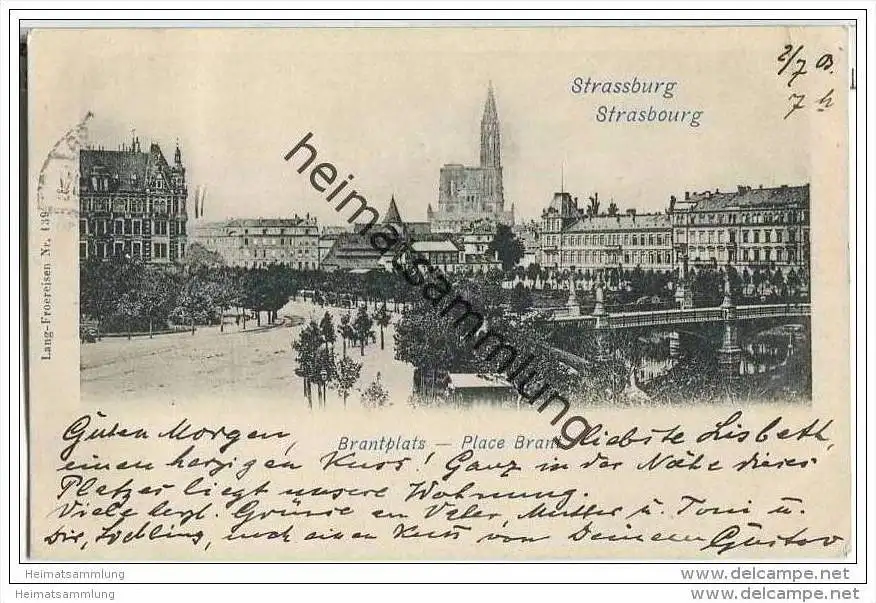 2/7 03.
7 h
Strassburg
Strasbourg
Lang-Froereisen Nr. 139
heimatsammlung
Brantplats — Place Brant
Guten Morgen, liebste Lisbeth,
einen herzigen Kuss! Ganz in der Nähe dieses
Platzes liegt unsere Wohnung.
Viele herzl. Grüsse an Vater, Mutter u. Toni u.
Dir, Liebling, noch einen Kuss von Deinem Gustav
Heimatsammlung www.delcampe.net
Heimatsammlung www.delcampe.net